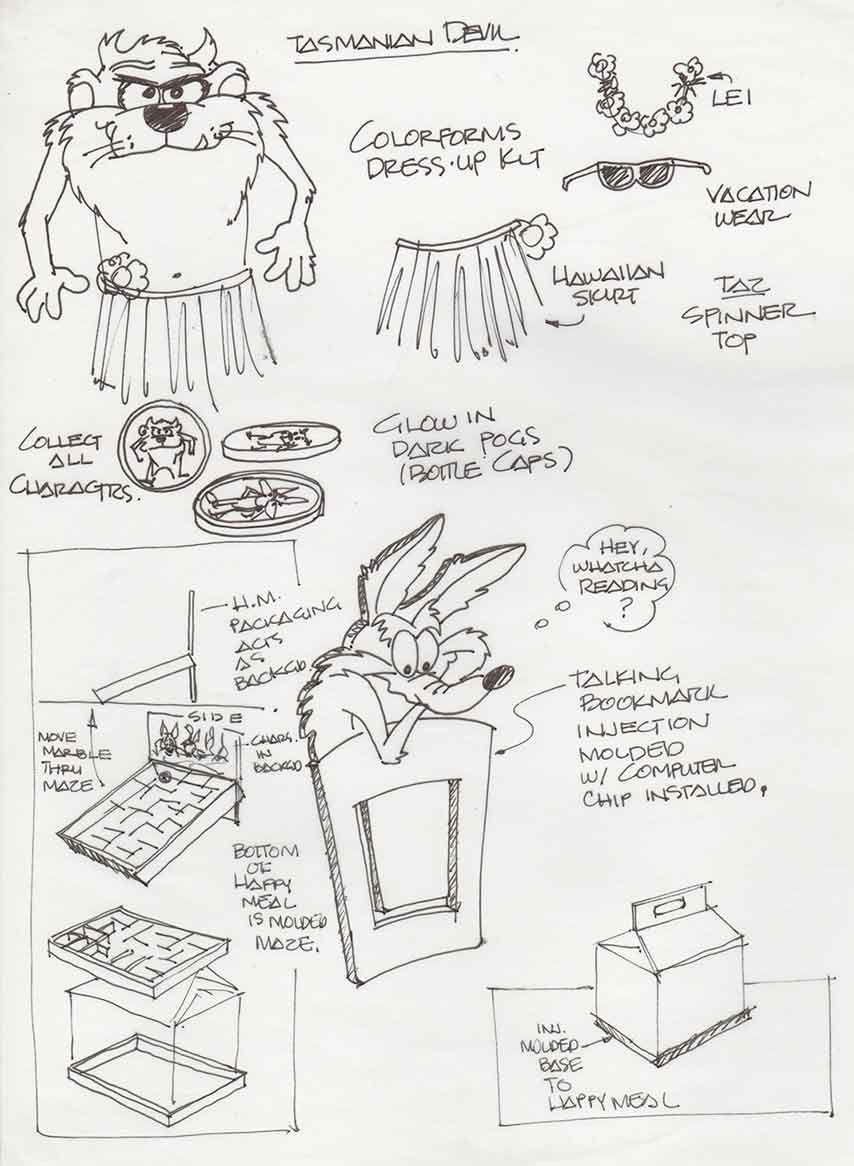 TASMANIAN DEVIL
LEI
COLORFORMS
DRESS-UP KIT
VACATION
WEAR
HAWAIIAN
SKIRT
TAZ
SPINNER
TOP
COLLECT
ALL
CHARACTRS.
GLOW IN
DARK POGS
(BOTTLE CAPS)
HEY,
WHATCHA
READING
?
H.M.
PACKAGING
ACTS
AS
BACKGD.
TALKING
BOOKMARK
INJECTION
MOLDED
W/ COMPUTER
CHIP INSTALLED.
SIDE
MOVE
MARBLE
THRU
MAZE
CHARS.
IN
BACKGD
BOTTOM
OF
HAPPY
MEAL
IS MOLDED
MAZE.
INJ.
MOLDED
BASE
TO
HAPPY MEAL